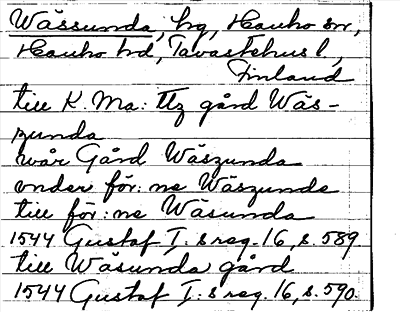 Wäsunda, hg, Hauho sn,
Hauho hd, Tavastehus l,
Finland
till K. Ma: Ttz gård Wäs-
zunda
wår Gård Wäszunda
vnder för: ne Wäszunde
till för: ne Wäsunda
1544 Gustaf I: s reg. 16, s. 589
till Wäsunda gård
1544 Gustaf I: s reg. 16, s. 590.